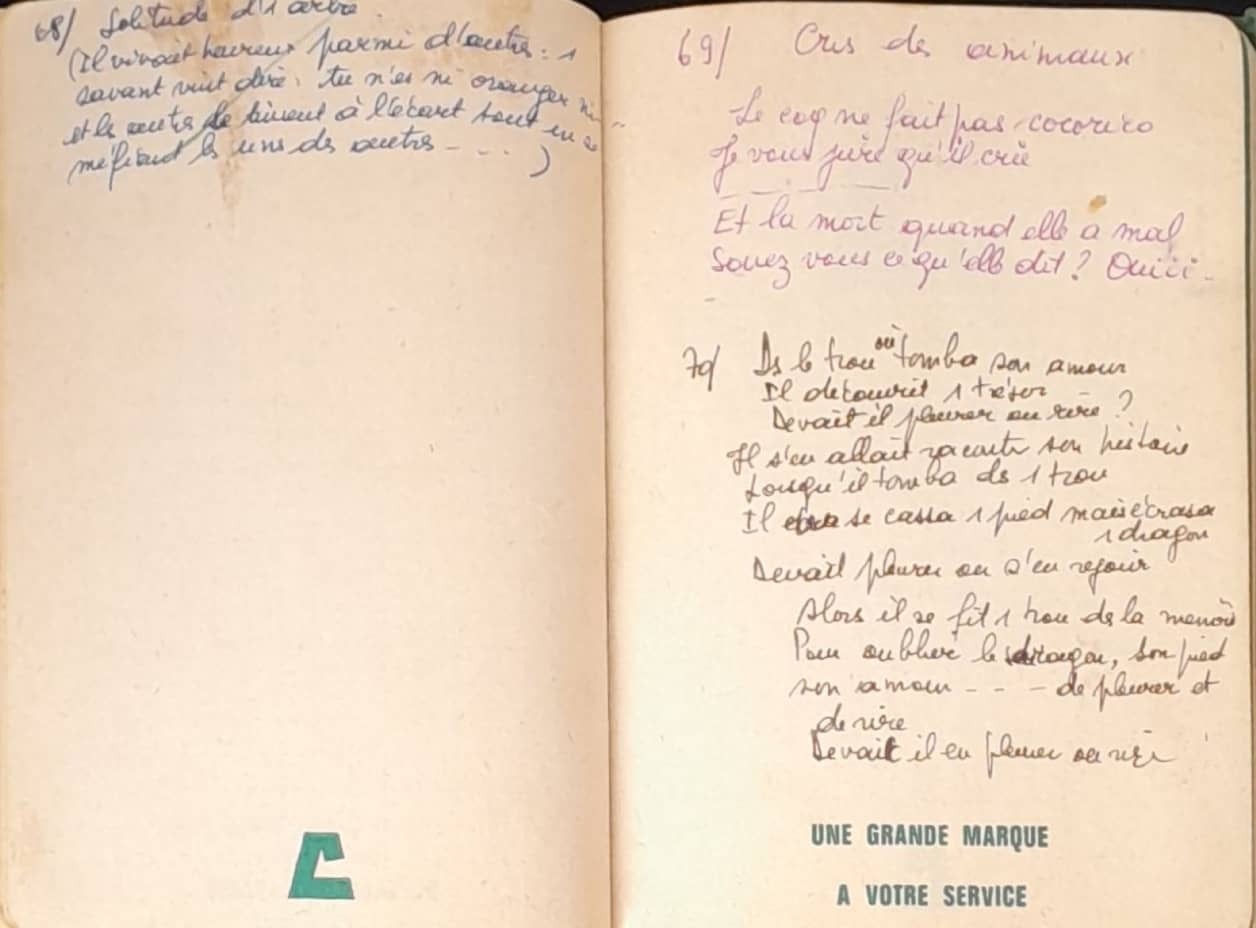 68/ Solitude d'1 arbre
(Il vivait heureux parmi d'autres : 1
savant vint dire : tu n'es ni oranger ni
et les autres se tinrent à l'écart tout en se
méfiant les uns des autres - . . . )
69/ Cris des animaux
Le coq ne fait pas cocorico
Je vous jure qu'il crie
Et la mort quand elle a mal
Savez vous ce qu'elle dit ? Ouiii -
70/ Ds le trou où tomba son amour
Il découvrit 1 trésor
Devait il pleurer ou rire ?
Il s'en allait raconter son histoire
Lorsqu'il tomba ds 1 trou
Il se cassa 1 pied mais écrasa
1 dragon
Devait pleurer ou s'en réjouir
Alors il se fit 1 trou ds la
Pour oublier le dragon, son pied
son amour - - - de pleurer et
de rire
Devait il en pleurer ou rire
UNE GRANDE MARQUE
A VOTRE SERVICE